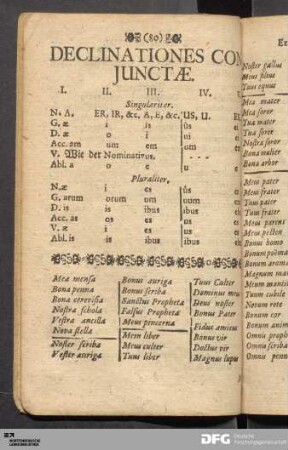 (80)
DECLINATIONES CON
JUNCTÆ.
I. II. III. IV.
Singulariter.
N. A. ER, IR, &c. A, E, &c. US, U.
G. æ i is ûs
D. æ o i ui
Acc. am um em um
V. Wie der Nominativus.
Abl. a o e u
Pluraliter.
N. æ i es ûs
G. arum orum um uum
D. is is ibus ibus
Acc. as os es us
V. æ i es us
Abl. is is ibus ibus
Mea mensa
Bona penna
Bona cerevisia
Nostra schola
Vestra ancilla
Nova stella
Noster scriba
Vester auriga
Bonus auriga
Bonus scriba
Sanctus Propheta
Falsus Propheta
Meus pincerna
Meus liber
Meus culter
Tuus liber
Tuus Culter
Dominus meus
Deus noster
Bonus Pater
Fidus amicus
Bonus vir
Doctus vir
Magnus lupus
Noster gallus
Meus filius
Tuus equus
Mea mater
Mea soror
Tua soror
Nostra soror
Bona mulier
Bona arbor
Meus pater
Meus frater
Tuus pater
Tuus frater
Meus parens
Meus pecten
Bonus homo
Bonum poëma
Bonum
Magnum
Meum
Tuum cubile
Notum rete
Bonum cor
Bonum
Omne
Omne
DFG Deutsche Forschungsgemeinschaft